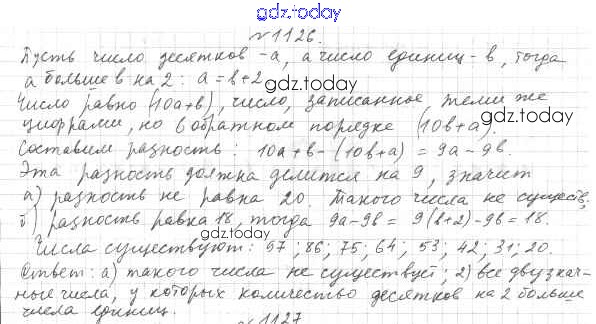 gdz.today
№1126.
Пусть число десятков -а, а число единиц - в, тогда
а больше в на 2: а = в+2
gdz.today
Число равно (10а+в), число, записанное теми же
цифрами, но в обратном порядке (10в+а).
gdz.today
Составим разность: 10а+в-(10в+а) = 9а-9в.
Эта разность должна делится на 9, значит
gdz.today
а) разность не равна 20. Такого числа не существ;
б) разность равна 18, тогда 9а-9в = 9(в+2)-9в=18.
gdz.today
Числа существуют: 97; 86; 75; 64; 53; 42; 31; 20.
Ответ: а) такого числа не существует; 2) все двузнач-
ные числа, у которых количество десятков на 2 больше
числа единиц.
gdz.today
№1127